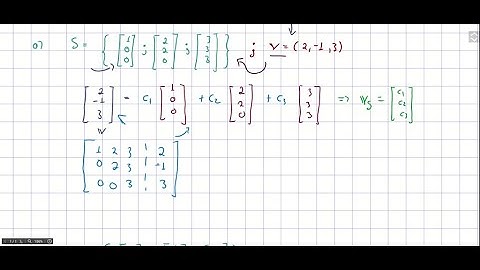 a) S = { [1 0 0] ; [2 2 0] ; [3 3 3] } ; v = (2, -1, 3)
[2 -1 3] = c1 [1 0 0] + c2 [2 2 0] + c3 [3 3 3] => vs = [c1 c2 c3]
v
1 2 3 | 2
0 2 3 | -1
0 0 3 | 3